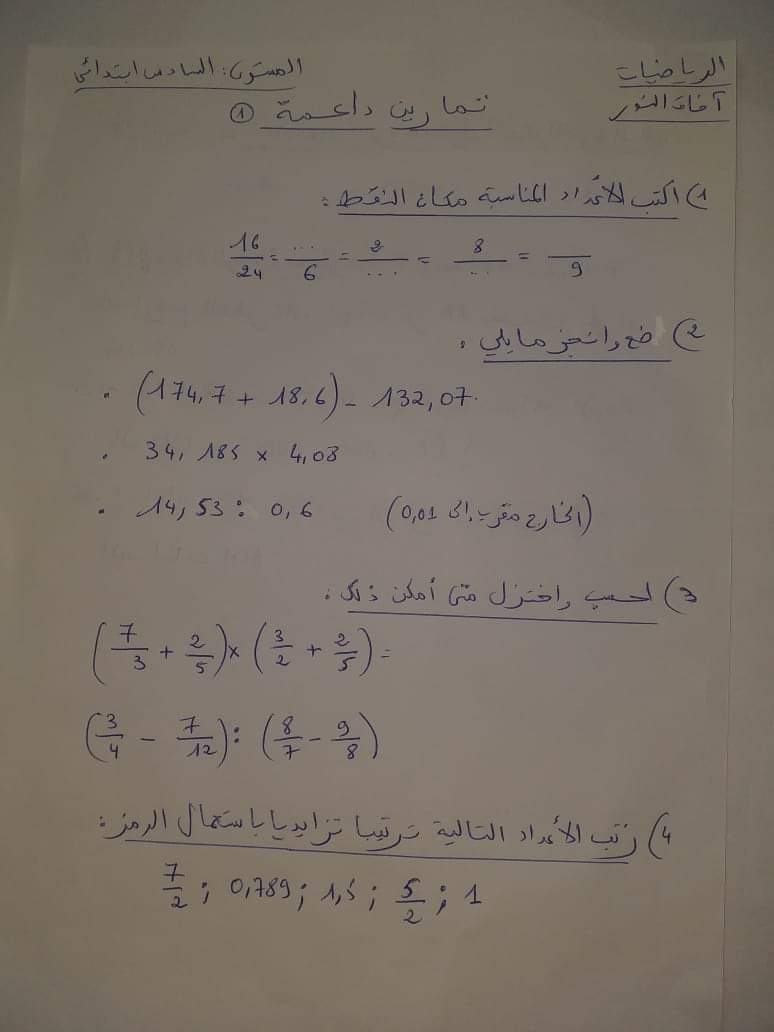 الرياضيات
المستوى: السادس ابتدائي
آفاق النور
تمارين داعمة ①
1) اكتب الأعداد المناسبة مكان النقط:
16/24 = .../6 = 2/... = 8/... = /9
2) ضع وانجز مايلي:
. (174,7 + 18,6) - 132,07.
. 34,185 x 4,08
. 14,53 : 0,6 (الخارج مقرب إلى 0,01)
3) احسب واختزل متى أمكن ذلك:
(7/3 + 2/5) x (3/2 + 2/5) =
(3/4 - 7/12) : (8/7 - 9/8)
4) رتب الأعداد التالية ترتيبا تزايديا باستعمال الرمز:
7/2 ; 0,789 ; 1,5 ; 5/2 ; 1